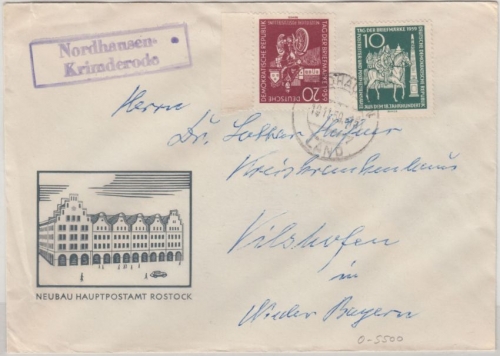 Nordhausen-
Krimderode
TAG DER BRIEFMARKE 1959
DEUTSCHE DEMOKRATISCHE REPUBLIK
20
TAG DER BRIEFMARKE 1959
10
DEUTSCHE DEMOKRATISCHE REPUBLIK
LAND
Herrn
Dr. Lothar
Kreiskrankenhaus
Vilshofen
in
Nieder Bayern
NEUBAU HAUPTPOSTAMT ROSTOCK
O-5500